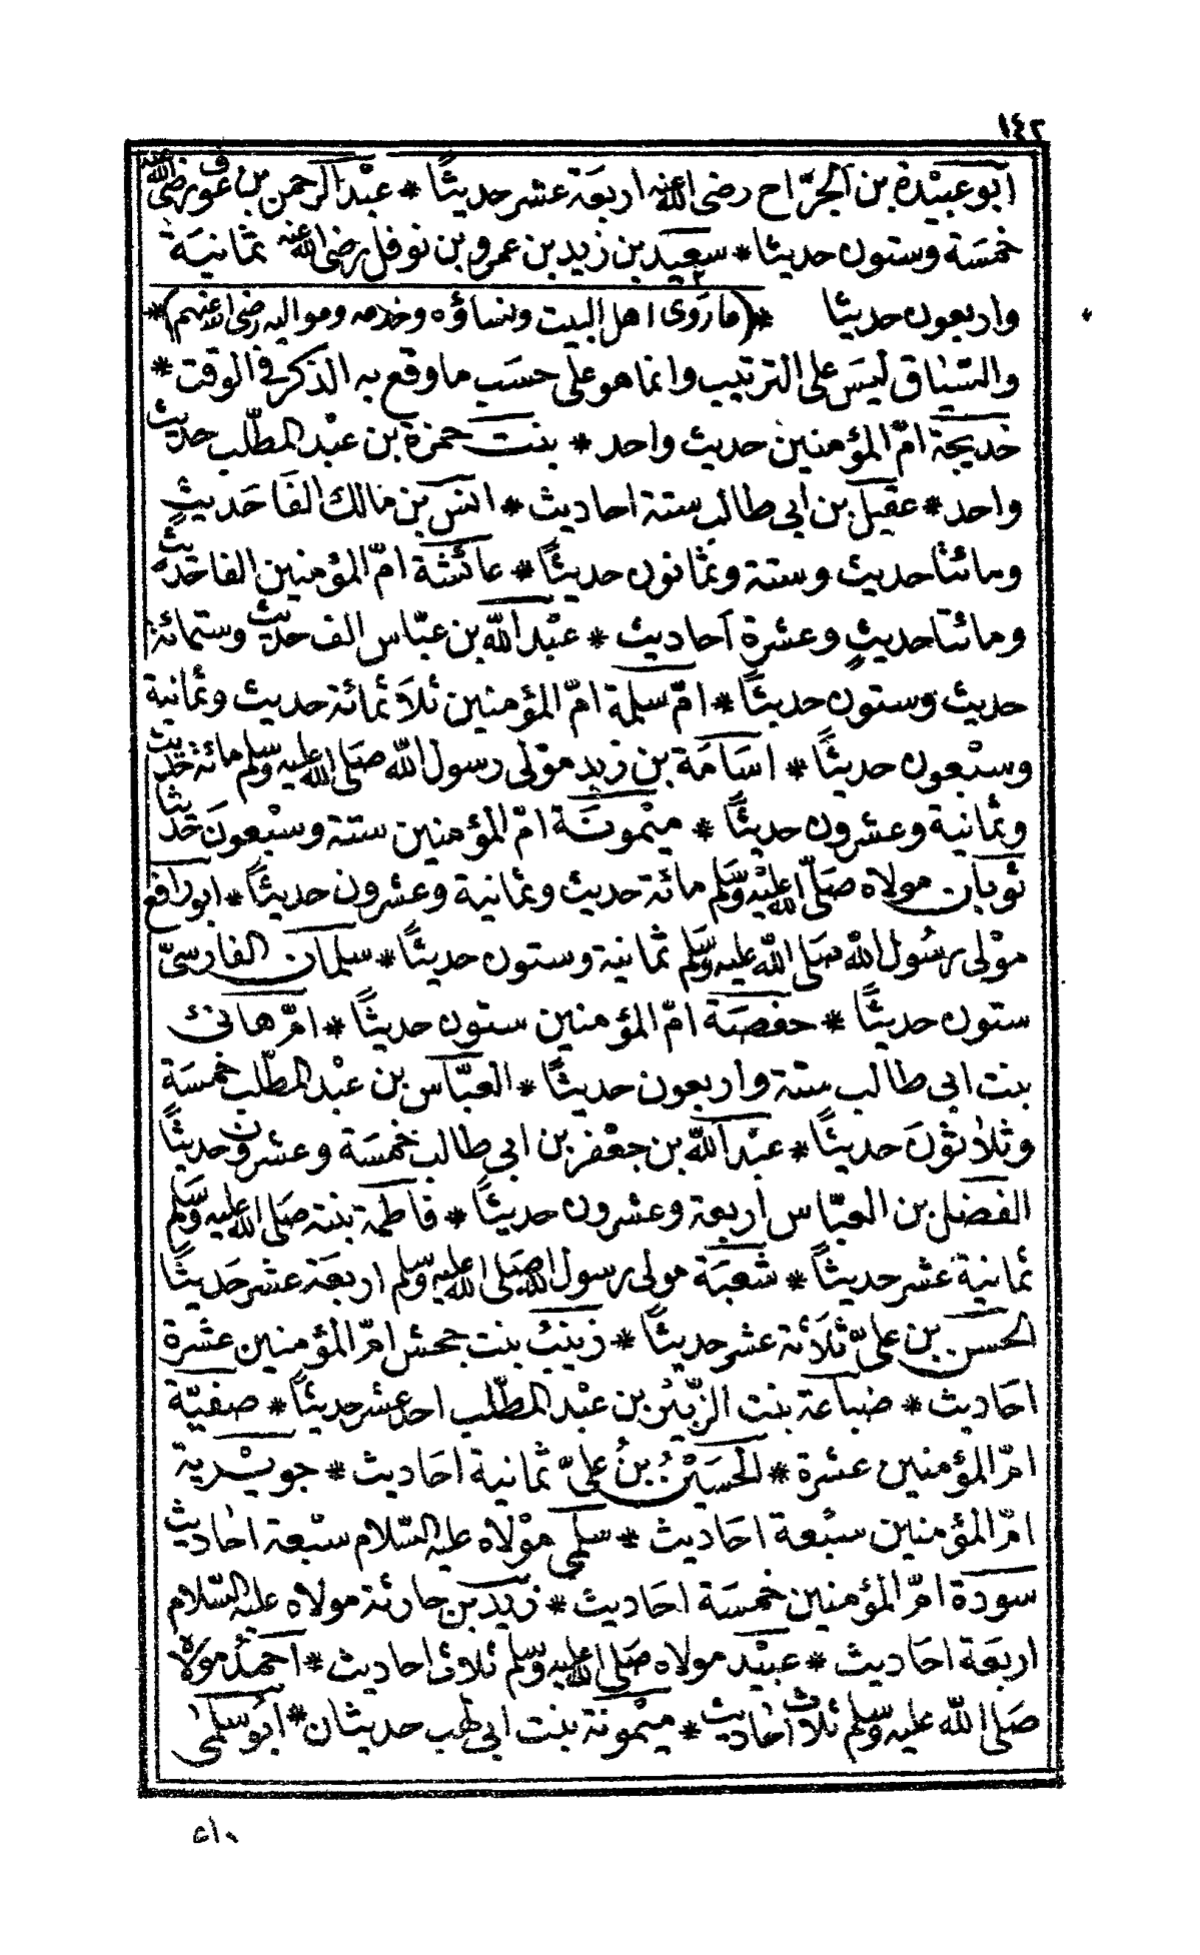 ١٤٢
أبو عبيْدة بن الجرّاح رضى الله عنه اربعَة عشر حديثًا * عبْد الرحمن بن عوف رضى الله عنه
خمسَة وستون حديثا * سعيد بن زيد بن عمرو بن نوفل رضى الله عنه ثمانيَة
واربعون حديثا * (ما رَوى اهل البيت ونساؤه وخدمه ومواليه رضى الله عنهم) *
والسّياق ليسَ على الترتيب وانما هو على حسَب ما وقع به الذكر فى الوقت *
خديجة امّ المؤمنين حديث واحد * بنت حمزة بن عبْد المطّلب حديث
واحد * عقيل بن أبي طالب ستة احاديث * انس بن مالك الفَا حَديثٍ
ومائتا حديث وستة وثمانون حديثًا * عائشة امّ المؤمنين الفا حديث
ومائتا حديثٍ وعشرة أحاديث * عبْد الله بن عبّاس الف حديث وستمائة
حديث وستون حديثًا * امّ سلمة امّ المؤمنين ثلاَثمائة حديث وثمانية
وسبْعون حديثًا * اسَامَة بن زيد موْلى رسول الله صَلى الله عليه وسلم مائة حديث
وثمانية وعشرون حديثًا * ميْمونَة امّ المؤمنين ستة وسبْعونَ حَديثا
ثوبان مولاه صَلّى الله عليْه وسَلم مائة حديث وثمانية وعشرون حديثًا * ابو رافع
موْلى رسُول الله صَلى الله عليه وسَلم ثمانية وستون حديثًا * سلمان الفارسىّ
ستون حديثًا * حفصَة امّ المؤمنين ستون حديثًا * امّ هانئ
بنت ابي طالب ستة واربعون حديثًا * العبّاس بن عبْد المطّلب خمسَة
وثلاثوْنَ حديثًا * عبْد الله بن جعْفر بن ابى طالب خمسَة وعشرون حديثًا
الفضل بن العبّاس أربعة وعشرون حديثًا * فاطمة بنته صَلى الله عليه وسَلم
ثمانية عشر حديثًا * شعبَة مولى رسول الله صَلى الله عليه وسلم اربعَة عشر حَديثًا
الحسن بن علىّ ثلاَثة عشر حديثًا * زينبُ بنت جحش امّ المؤمنين عشرة
احَاديث * ضباعة بنت الزّبيْر بن عبْد المطّلب احد عشر حديثًا * صفيّة
امّ المؤمنين عشرة * الحسَيْنُ بنُ علىّ ثمانية احَاديث * جويْرية
امّ المؤمنين سبْعة احَاديث * سلمى موْلاه عليه السّلام سبْعة احاديث
سودَة امّ المؤمنين خمسَة احَاديث * زيد بن حارثة مولاه عليه السّلام
اربعَة احَاديث * عبيْد مولاه صَلى الله عليه وسلم ثلاث احاديث * احمدُ مولاه
صَلى الله عليه وسلم ثلاث أحاديث * ميْمونة بنت ابى لهب حديثان * ابُو سلمى